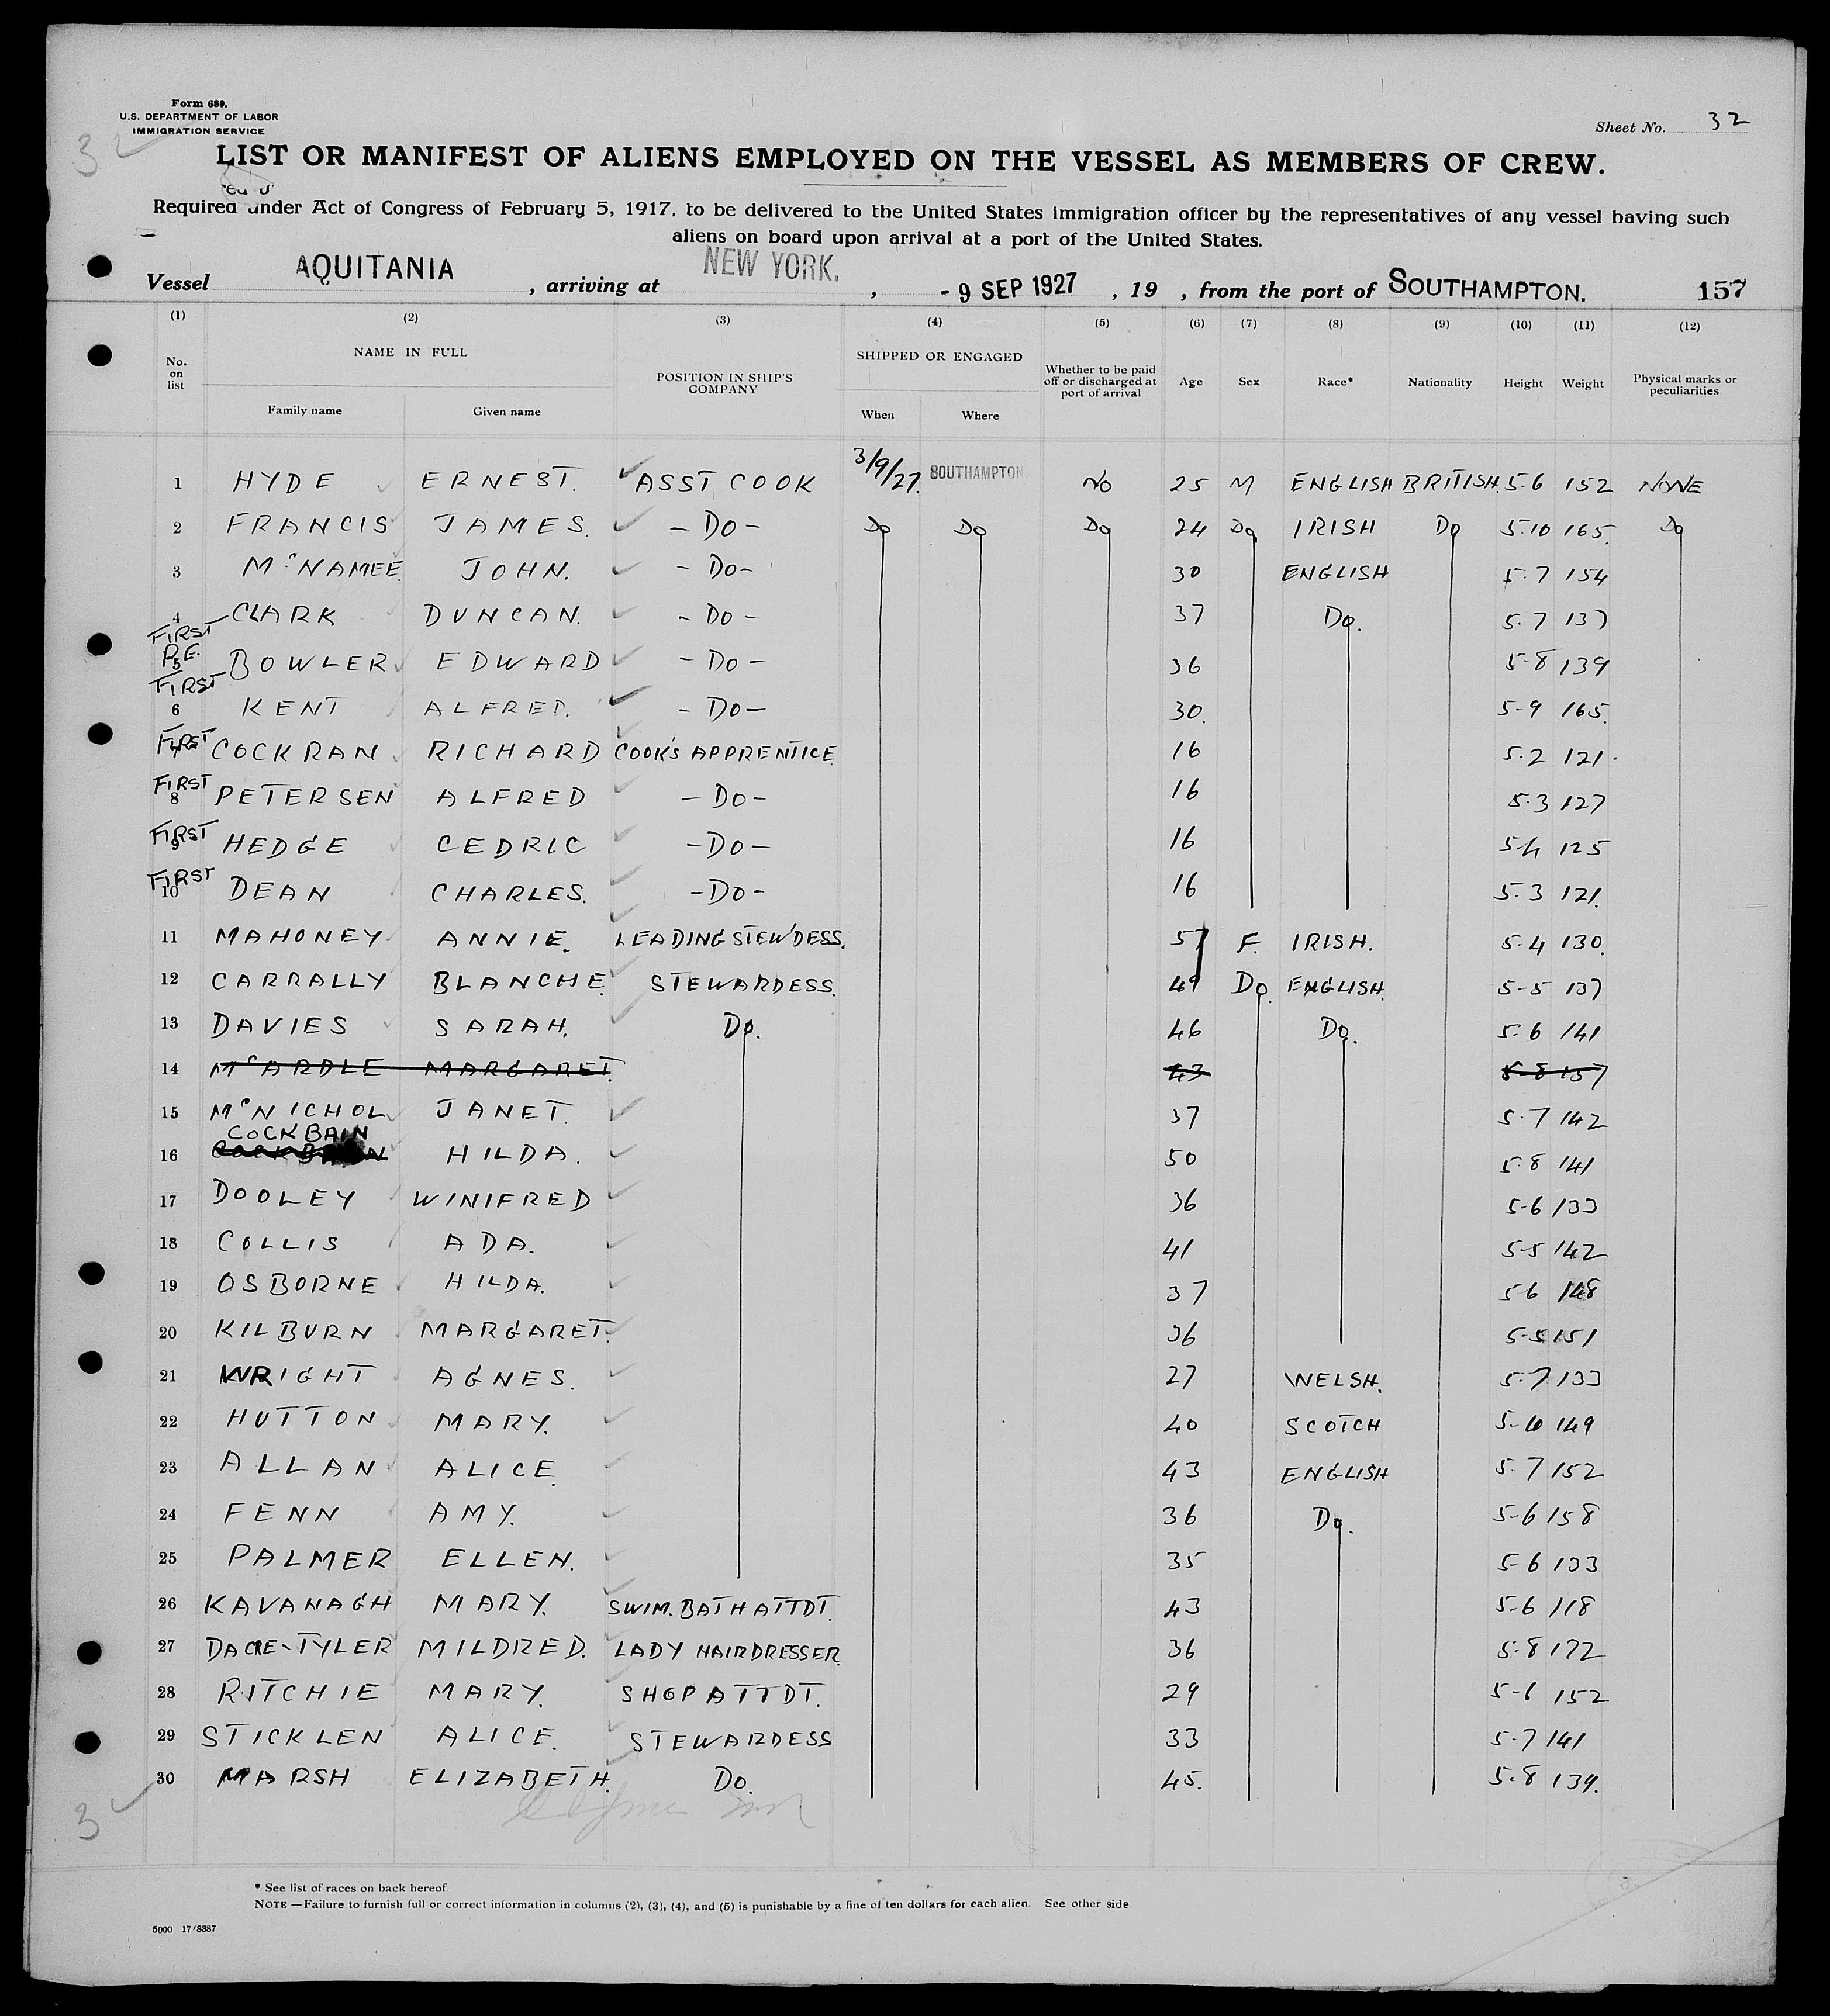 Form 689.
U.S. DEPARTMENT OF LABOR
IMMIGRATION SERVICE
Sheet No. 32
3
LIST OR MANIFEST OF ALIENS EMPLOYED ON THE VESSEL AS MEMBERS OF CREW.
Required under Act of Congress of February 5, 1917, to be delivered to the United States immigration officer by the representatives of any vessel having such
aliens on board upon arrival at a port of the United States.
Vessel AQUITANIA , arriving at NEW YORK. , - 9 SEP 1927 , 19 , from the port of SOUTHAMPTON. 157
(1) (2) (3) (4) (5) (6) (7) (8) (9) (10) (11) (12)
No. on list NAME IN FULL POSITION IN SHIP'S COMPANY SHIPPED OR ENGAGED Whether to be paid off or discharged at port of arrival Age Sex Race* Nationality Height Weight Physical marks or peculiarities
Family name Given name When Where
1 HYDE ERNEST. ASST COOK 3/9/27. SOUTHAMPTON NO 25 M ENGLISH BRITISH. 5.6 152 NONE
2 FRANCIS JAMES. - DO - DO DO DO 24 DO IRISH DO 5.10 165. DO
3 McNAMEE. JOHN. - DO - 30 ENGLISH 5.7 154
4 CLARK DUNCAN. - DO - 37 DO. 5.7 137
FIRST P.E. 5 BOWLER EDWARD - DO - 36 5-8 139
FIRST 6 KENT ALFRED. - DO - 30. 5-9 165.
FIRST 7 COCKRAN RICHARD COOK'S APPRENTICE 16 5.2 121.
FIRST 8 PETERSEN ALFRED - DO - 16 5.3 127
FIRST 9 HEDGE CEDRIC - DO - 16 5-4 125
FIRST 10 DEAN CHARLES. - DO - 16 5.3 121.
11 MAHONEY ANNIE. LEADING STEW'DESS. 57 F. IRISH. 5.4 130.
12 CARRALLY BLANCHE. STEWARDESS. 49 DO. ENGLISH. 5-5 137
13 DAVIES SARAH. DO. 46 DO. 5.6 141
14 McARDLE MARGARET. 43 5-8 157
15 McNICHOL JANET. 37 5.7 142
COCKBAIN
16 HILDA. 50 5.8 141
17 DOOLEY WINIFRED 36 5-6 133
18 COLLIS ADA. 41 5-5 142
19 OSBORNE HILDA. 37 5-6 148
20 KILBURN MARGARET. 36 5-5 151
21 WRIGHT AGNES. 27 WELSH. 5.7 133
22 HUTTON MARY. 40 SCOTCH 149
23 ALLAN ALICE. 43 ENGLISH 5.7 152
24 FENN AMY. 36 DO. 5-6 158
25 PALMER ELLEN. 35 5-6 133
26 KAVANAGH MARY. SWIM. BATH ATTDT. 43 5-6 118
27 DACRE-TYLER MILDRED. LADY HAIRDRESSER. 36 5.8 172
28 RITCHIE MARY. SHOP ATTDT. 29 5-6 152
29 STICKLEN ALICE. STEWARDESS 33 5.7 141
30 MARSH ELIZABETH. DO. 45. 5.8 139.
3
* See list of races on back hereof
NOTE.—Failure to furnish full or correct information in columns (2), (3), (4), and (5) is punishable by a fine of ten dollars for each alien. See other side
5000 17/8387